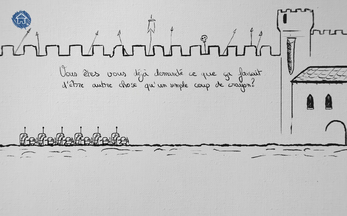 Vous êtes vous déjà demandé ce que ça faisait
d'être autre chose qu'un simple coup de crayon?